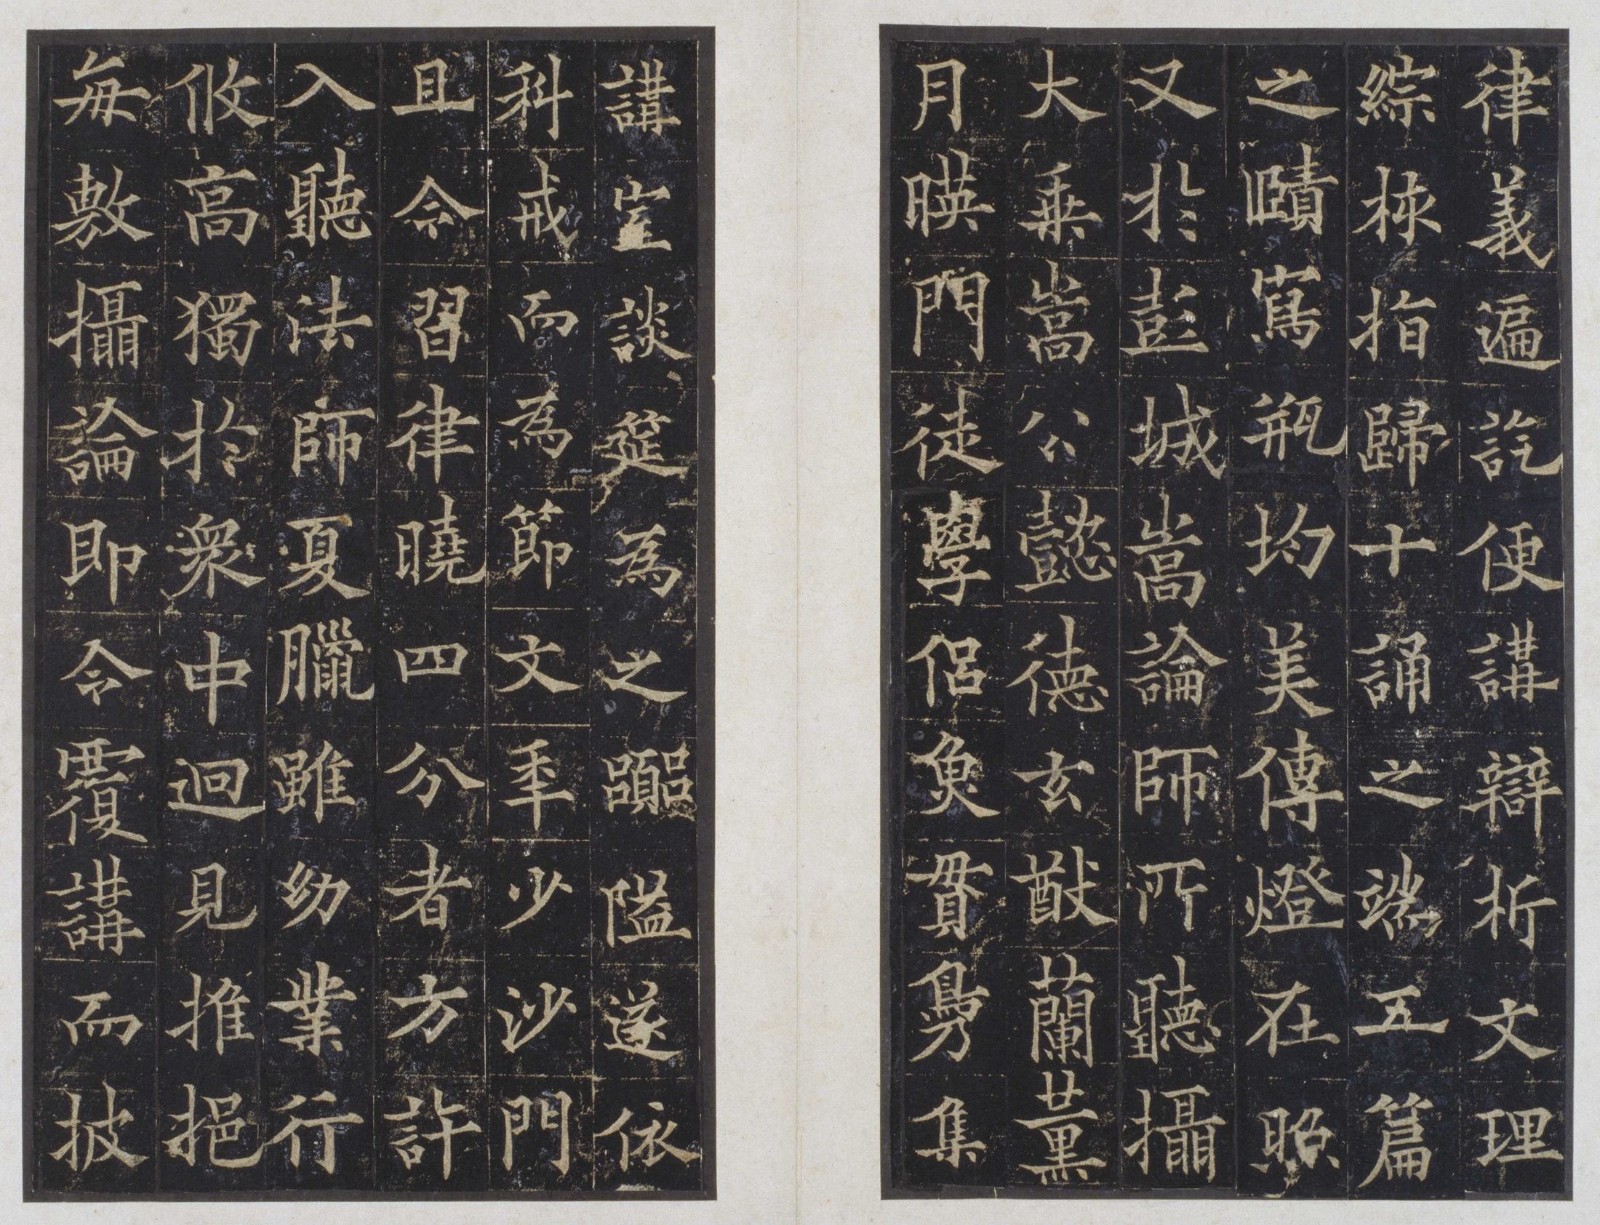 律義遍訖便講辯析文理
綜栐指歸十誦之端五篇
之賾寫瓶均美傳燈在照
又於彭城嵩論師所聽攝
大乗嵩公懿德玄猷蘭薰
月暎門徒學侣魚貫鳧集
講室談筵為之嚻隘遂依
科戒而為節文年少沙門
且令習律曉四分者方許
入聽法師夏臘雖幼業行
攸高獨於衆中迥見推挹
每敷攝論即令覆講而披